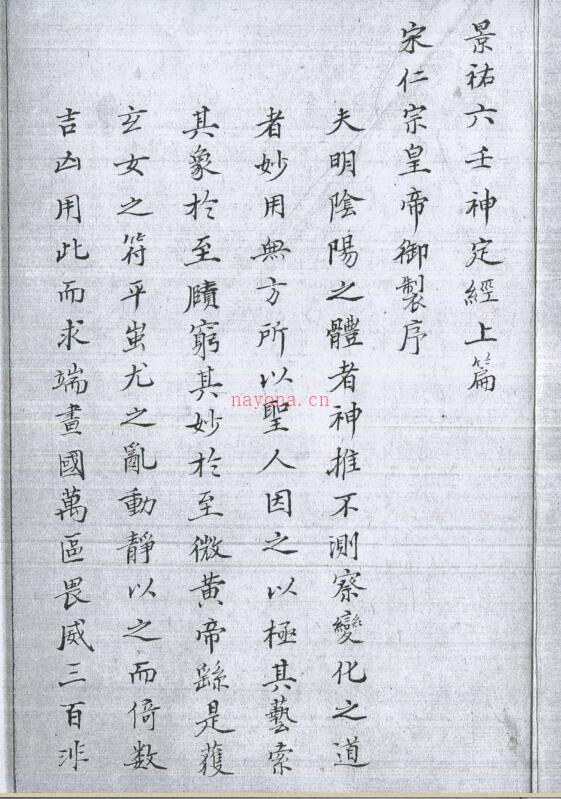 景祐六壬神定經上篇
宋仁宗皇帝御製序
夫明陰陽之體者神推不測察變化之道
者妙用無方所以聖人因之以極其藝索
其象於至賾窮其妙於至微黄帝繇是獲
玄女之符平蚩尤之亂動靜以之而倚数
吉凶用此而求端畫國萬區畏威三百非
nayona.cn